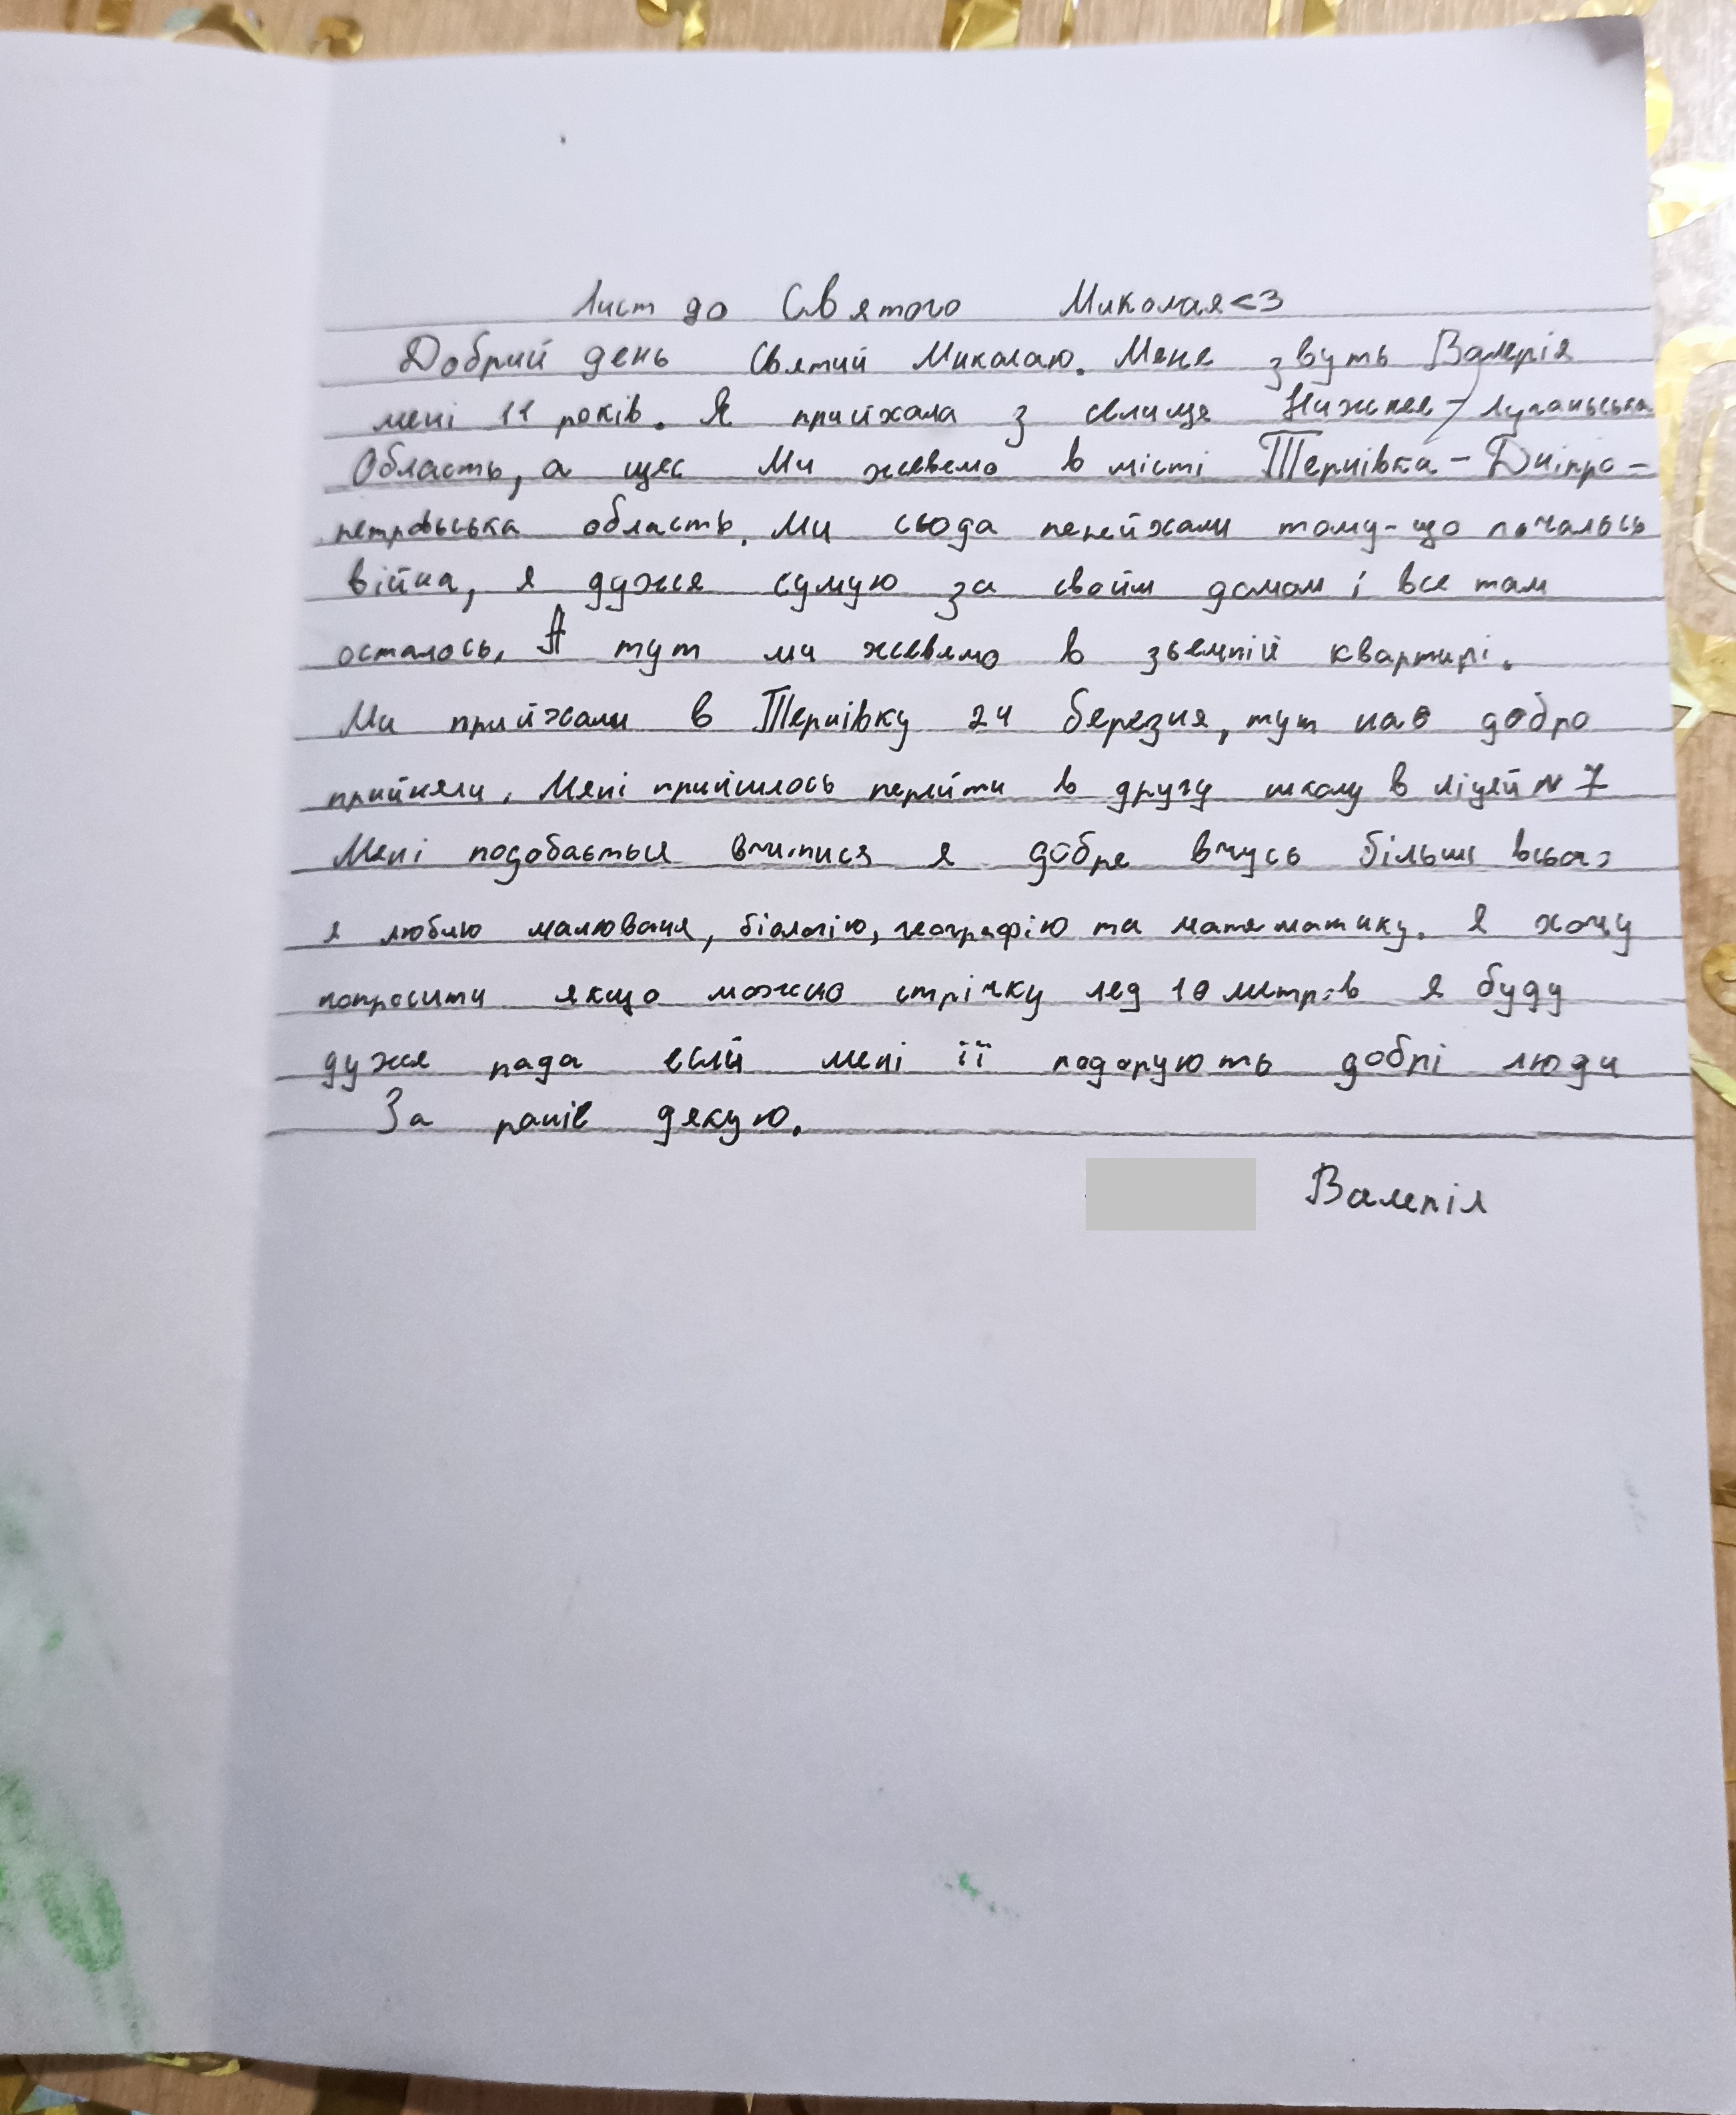 Лист до Святого Миколая<3
Добрий день Святий Миколаю. Мене звуть Валерія
мені 11 років. Я приїхала з селище Нижнее-Луганьська
Область, а щяс Ми жевемо в місті Тернівка-Дніпро-
петровьська область. Ми сьода переїжали тому-що почалось
війна, я дужея сумую за своїм домом і все там
осталось. А тут ми жевемо в зьемній квартирі.
Ми приїжали в Тернівку 24 березня, тут нас добро
прийняли. Мені прийшлось перейти в другу школу в ліцей № 7
Мені подобається вчитися я добре вчусь більше всього
я люблю малюваня, біологію, географію та математику. Я хочу
попросити якщо можно стрічку лед 10 метрів я буду
дуже рада еслй мені її подарують добрі люди
За раніє дякую.
Валерія